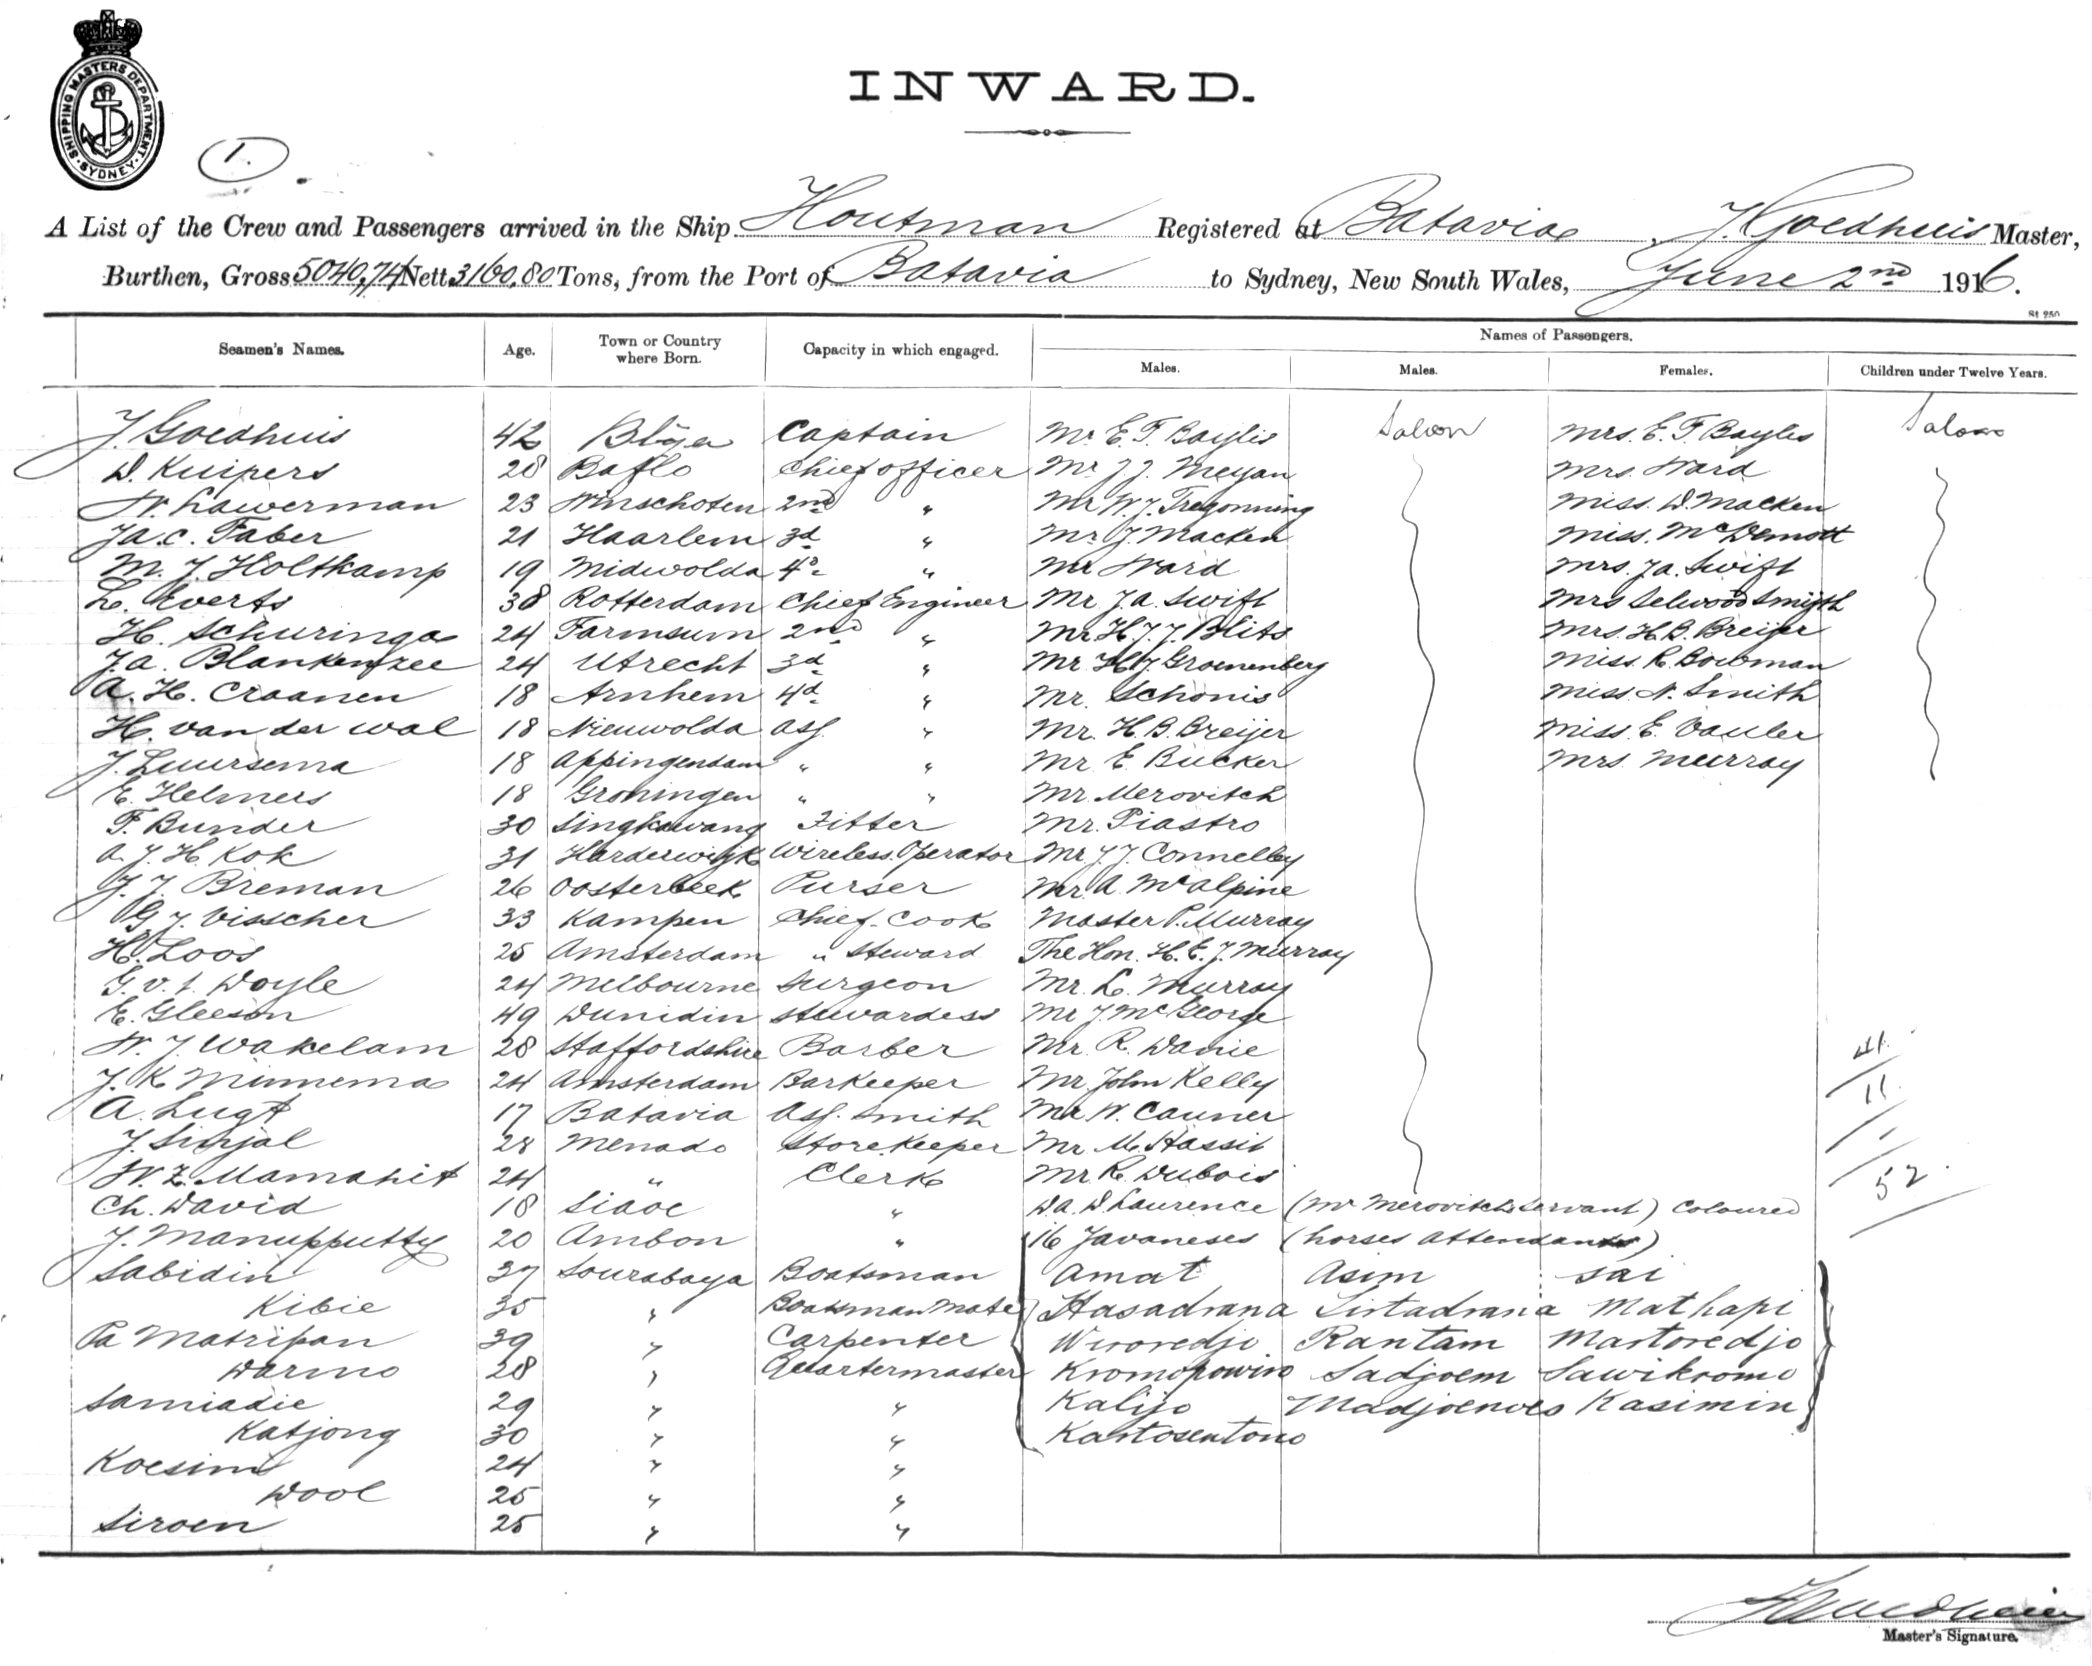 SHIPPING MASTERS DEPARTMENT SYDNEY
1.
INWARD.
A List of the Crew and Passengers arrived in the Ship Houtman Registered at Batavia, J. Goedhuis Master,
Burthen, Gross 5040,74 Nett 3160,80 Tons, from the Port of Batavia to Sydney, New South Wales, June 2nd 1916.
St 250
Seamen's Names. Age. Town or Country where Born. Capacity in which engaged. Names of Passengers.
Males. Males. Females. Children under Twelve Years.
J. Goedhuis 42 Captain Mr. E. F. Baylis Saloon Mrs. E. F. Baylis Saloon
D. Kuipers 28 Baflo Chief officer Mr J. J. Meyan Mrs. Ward
W. Lawerman 23 Winschoten 2nd " Mr W. J. Tregonning Miss. D. Macken
Ja. C. Faber 21 Haarlem 3d " Mr J. Macken Miss. McDemott
M. J. Holtkamp 19 Midwolda 4d " Mr Ward Mrs. J. A. Swift
L. Everts 38 Rotterdam Chief Engineer Mr J. A. Swift Mrs Selwood Smyth
H. Schuringa 24 Farmsum 2nd " Mr H. J. J. Blits Mrs. H. B. Breijer
J. A. Blankenzee 24 Utrecht 3d " Mr. H J Groenenberg Miss. R. Bowman
A. H. Craanen 18 Arnhem 4d " Mr. Schonis Miss. N. Smith
H. van der Wal 18 Nieuwolda Ass. " Mr. H. B. Breijer Miss. E. Vauler
J. Luursema 18 Appingendam " " Mr E. Bucker Mrs Murray
E. Helmers 18 Groningen " " Mr. Merovitch
F. Bunder 30 Singkawang Fitter Mr. Piastro
A. J. H. Kok 31 Harderwijk Wireless. Operator Mr J. J. Connelley
J. J. Breman 26 Oosterbeek Purser Mr. A. McAlpine
G. J. Visscher 33 Kampen Chief-Cook Master P. Murray
H. Loos 25 Amsterdam " Steward The Hon. H. E. J. Murray
G. V. I. Doyle 24 Melbourne Surgeon Mr. L. Murray
E. Gleeson 49 Dunidin Stewardess Mr J. McGeorge
W. J. Wakelam 28 Staffordshire Barber Mr. R. Danie
41.
J. K. Minnema 24 Amsterdam Barkeeper Mr John Kelly
11
A. Lugt 17 Batavia Ass. Smith Mr W. Cauner
1
J. Sinjal 28 Menado Storekeeper Mr M. Hassit
W. Z. Mamahit 24 " Clerk Mr. R. Dubois
52.
Ch. David 18 Siaoe " D. A. D Laurence (Mr Merovitch servant) Coloured
J. Manupputty 20 Ambon " 16 Javaneses (horses attendants)
Sabidin 37 Sourabaya Boatsman Amat Asim Sai
Kibie 35 " Boatsman Mate Hasadrana Sirtadrana Mathapi
Pa Matripan 39 " Carpenter Wiroredjo Rantam Martoredjo
Darmo 28 " Quartermaster Kromopowiro Sadjoem Sawikromo
Samiadie 29 " " Kalijo Madjoenoes Kasimin
Katjong 30 " " Kartosentono
Koesim 24 " "
Dool 25 " "
Siroen 25 " "
Master's Signature.